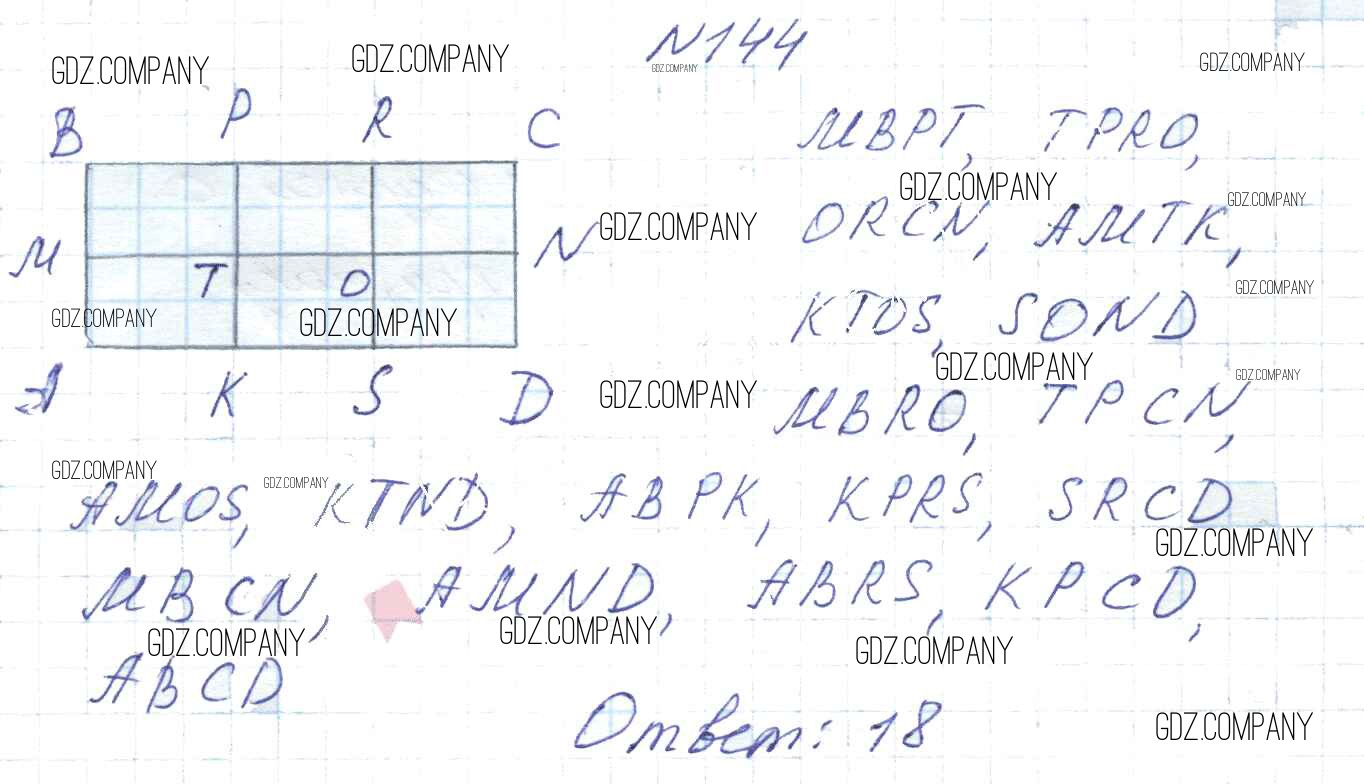 №144
GDZ.COMPANY GDZ.COMPANY GDZ.COMPANY GDZ.COMPANY
B P R C
MBPT, TPRO,
GDZ.COMPANY GDZ.COMPANY
M N GDZ.COMPANY
ORCN, AMTK,
T O
GDZ.COMPANY GDZ.COMPANY GDZ.COMPANY
KTOS, SOND
A K S D
GDZ.COMPANY GDZ.COMPANY GDZ.COMPANY
MBRO, TPCN,
GDZ.COMPANY GDZ.COMPANY
AMOS, KTND, ABPK, KPRS, SRCD
GDZ.COMPANY
MBCN, AMND, ABRS, KPCD,
GDZ.COMPANY GDZ.COMPANY GDZ.COMPANY
ABCD
Ответ: 18
GDZ.COMPANY